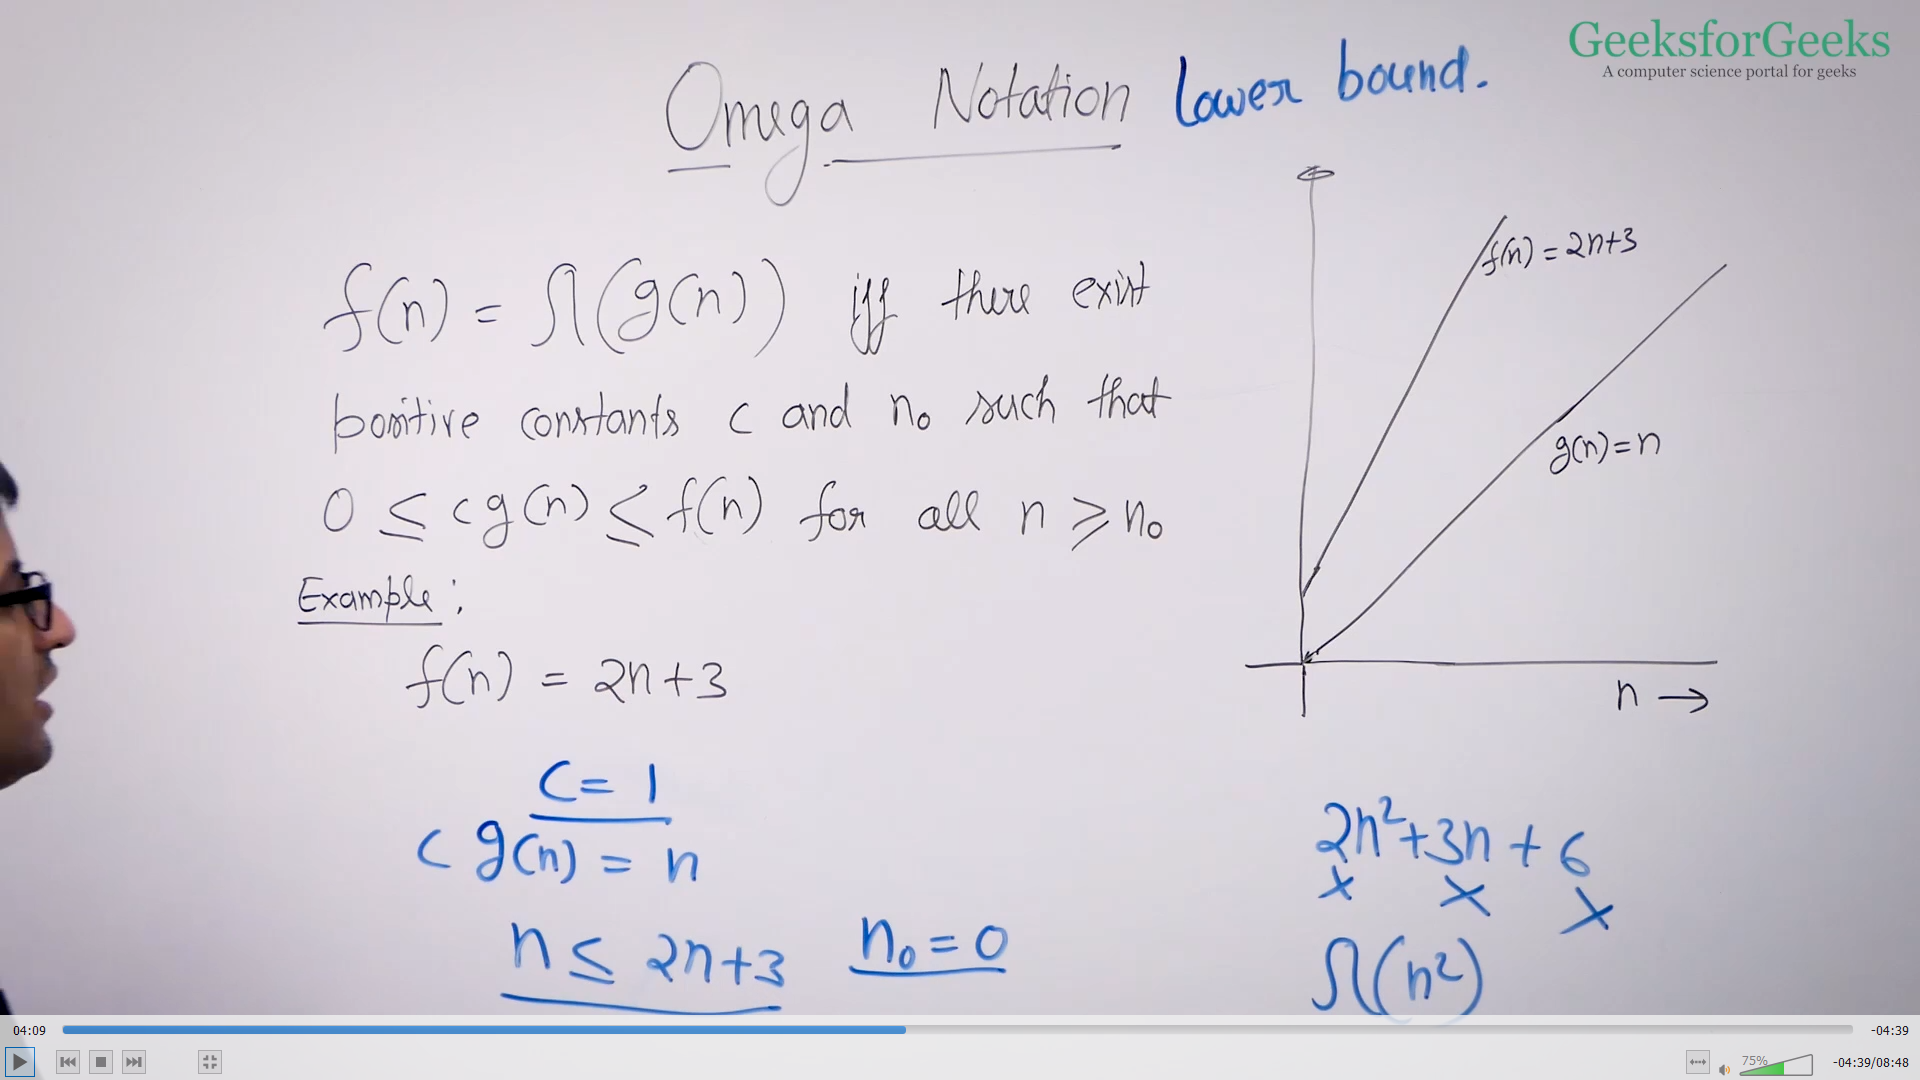 GeeksforGeeks
A computer science portal for geeks
Omega Notation Lower bound.
f(n) = Ω(g(n)) iff there exist
positive constants c and n₀ such that
0 ≤ cg(n) ≤ f(n) for all n ≥ n₀
Example:
f(n) = 2n+3
c = 1
c g(n) = n
n ≤ 2n+3 n₀ = 0
f(n) = 2n+3
g(n) = n
n →
2n²+3n+6
x x x
Ω(n²)
04:09 -04:39
75% -04:39/08:48